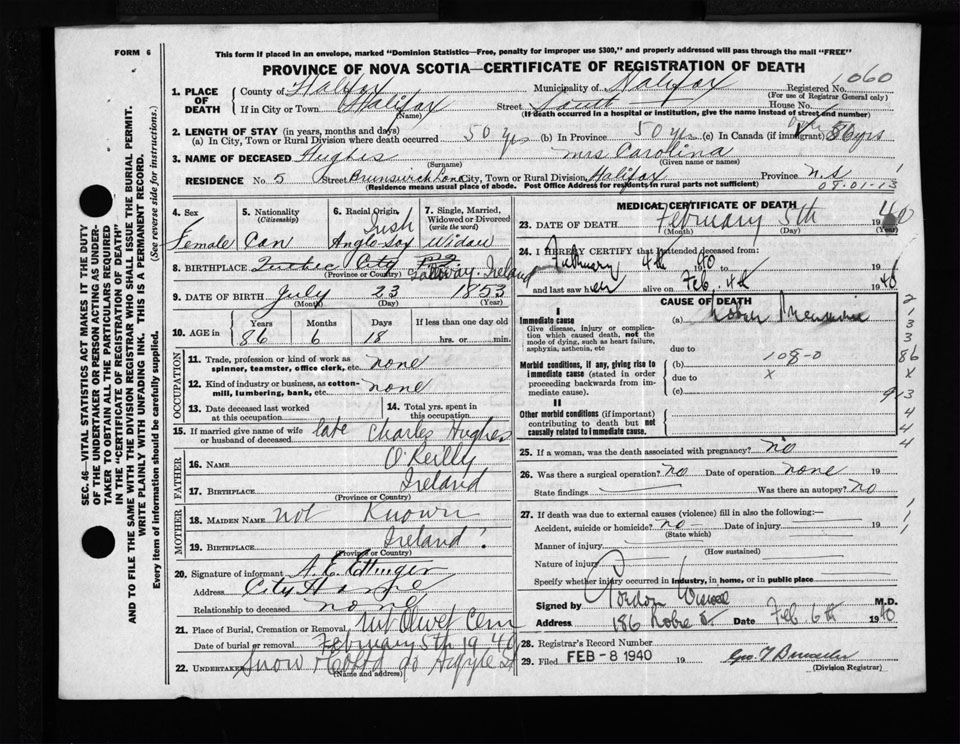 FORM 6
This form if placed in an envelope, marked "Dominion Statistics—Free, penalty for improper use $300," and properly addressed will pass through the mail "FREE"
PROVINCE OF NOVA SCOTIA—CERTIFICATE OF REGISTRATION OF DEATH
1. PLACE OF DEATH
County of Halifax Municipality of Halifax Registered No. 1060
(For use of Registrar General only)
If in City or Town Halifax Street South House No.
(Name) (If death occurred in a hospital or institution, give the name instead of street and number)
2. LENGTH OF STAY (in years, months and days)
(a) In City, Town or Rural Division where death occurred 50 yrs (b) In Province 50 yrs (c) In Canada (if immigrant) 86 yrs
3. NAME OF DECEASED Hughes Mrs Carolina
(Surname) (Given name or names)
RESIDENCE No. 5 Street Brunswick Lane City, Town or Rural Division Halifax Province N.S
(Residence means usual place of abode. Post Office Address for residents in rural parts not sufficient) 09-01-13
4. Sex Female
5. Nationality (Citizenship) Can
6. Racial Origin Irish Anglo-Sax
7. Single, Married, Widowed or Divorced (write the word) Widow
8. BIRTHPLACE Quebec City PQ Galloway-Ireland
(Province or Country)
9. DATE OF BIRTH July 23 1853
(Month) (Day) (Year)
10. AGE in Years Months Days If less than one day old
86 6 18 hrs. or min.
OCCUPATION
11. Trade, profession or kind of work as spinner, teamster, office clerk, etc. none
12. Kind of industry or business, as cotton-mill, lumbering, bank, etc. none
13. Date deceased last worked at this occupation
14. Total yrs. spent in this occupation
15. If married give name of wife or husband of deceased late Charles Hughes
FATHER
16. NAME O'Reilly
17. BIRTHPLACE Ireland
(Province or Country)
MOTHER
18. MAIDEN NAME not Known
19. BIRTHPLACE Ireland
(Province or Country)
20. Signature of informant A. E. Ettinger
Address City Home
Relationship to deceased none
21. Place of Burial, Cremation or Removal Mt Olivet Cem
Date of burial or removal February 5th 1940
22. UNDERTAKER Snow & Co Ltd 90 Argyle St
(Name and address)
MEDICAL CERTIFICATE OF DEATH
23. DATE OF DEATH February 5th 1940
(Month) (Day) (Year)
24. I HEREBY CERTIFY that I attended deceased from:
February 4th 1940 to Feb. 4th 1940
and last saw her alive on
CAUSE OF DEATH
I
Immediate cause
Give disease, injury or complication which caused death, not the mode of dying, such as heart failure, asphyxia, asthenia, etc
(a) Lobar Pneumonia
due to
Morbid conditions, if any, giving rise to immediate cause (stated in order proceeding backwards from immediate cause).
(b) 108-0
due to x
(c)
II
Other morbid conditions (if important) contributing to death but not causally related to immediate cause.
2
1
3
3
86
x
9-13
4
4
4
25. If a woman, was the death associated with pregnancy? no
26. Was there a surgical operation? no Date of operation none 19
State findings Was there an autopsy? no
27. If death was due to external causes (violence) fill in also the following:—
Accident, suicide or homicide? no Date of injury 19
(State which)
Manner of injury
(How sustained)
Nature of injury
Specify whether injury occurred in industry, in home, or in public place
Signed by Gordon Wiswell M.D.
Address 186 Robie St Date Feb. 6th 1940
28. Registrar's Record Number
29. Filed FEB - 8 1940 19
(Division Registrar)
SEC. 46—VITAL STATISTICS ACT MAKES IT THE DUTY
OF THE UNDERTAKER OR PERSON ACTING AS UNDER-
TAKER TO OBTAIN ALL THE PARTICULARS REQUIRED
IN THE "CERTIFICATE OF REGISTRATION OF DEATH"
AND TO FILE THE SAME WITH THE DIVISION REGISTRAR WHO SHALL ISSUE THE BURIAL PERMIT.
WRITE PLAINLY WITH UNFADING INK. THIS IS A PERMANENT RECORD.
Every item of information should be carefully supplied. (See reverse side for instructions.)